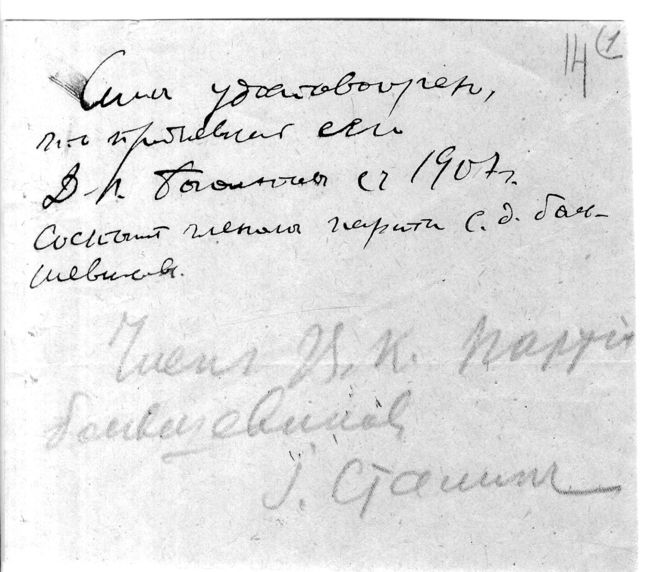 14 (1
Сим удостоверяю,
что предъявитель сего
Д-р. с 1907 г.
состоит членом партии с. д. боль-
шевиков.
Член Ц. К. партии
большевиков
І. Сталинъ